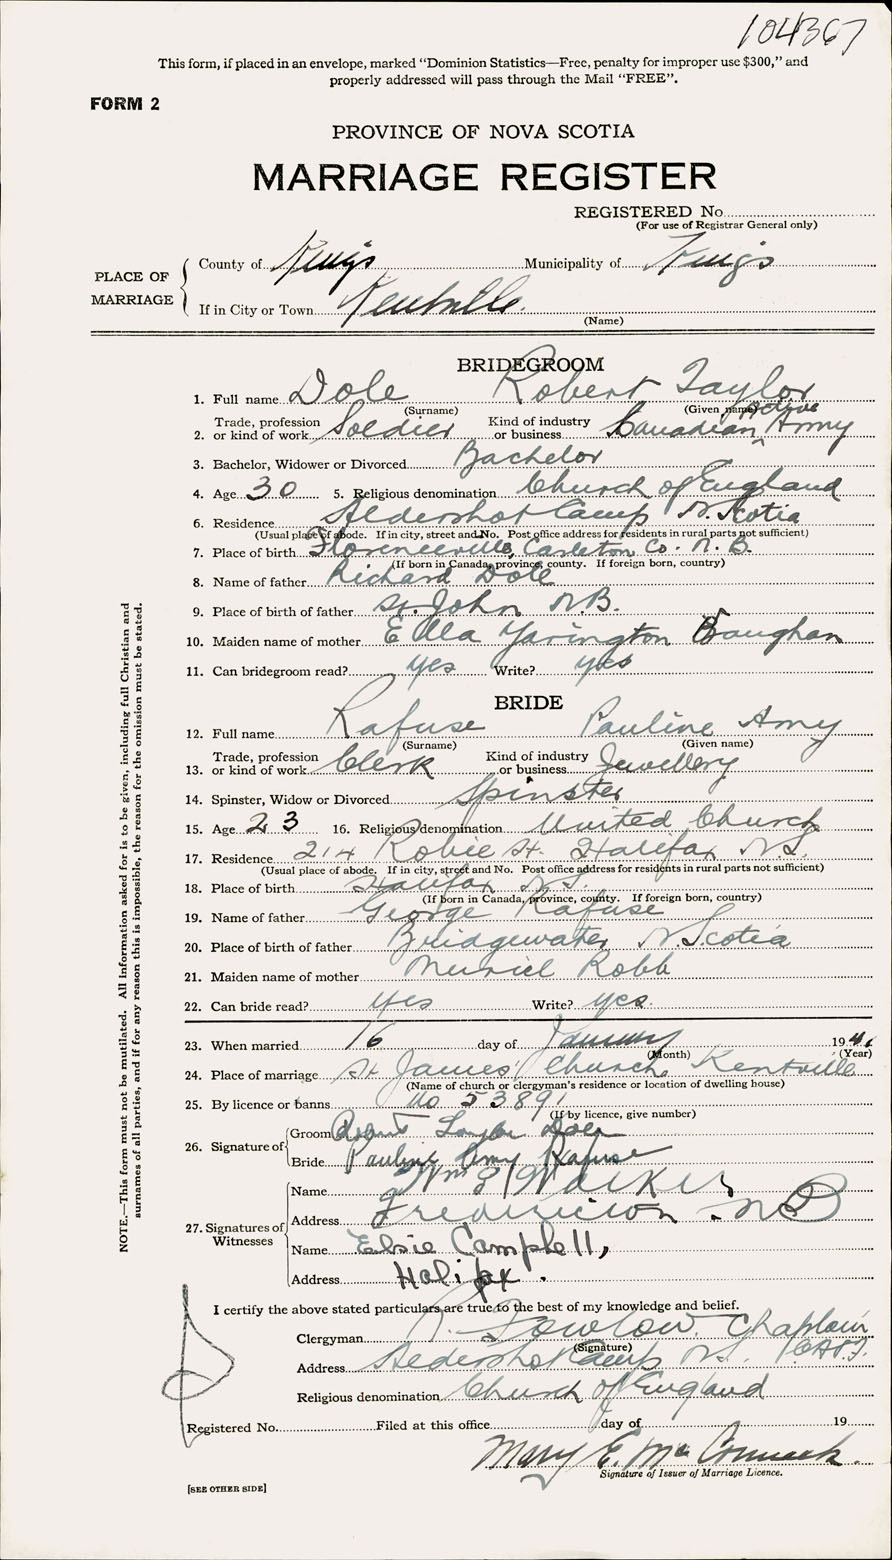 104367
This form, if placed in an envelope, marked “Dominion Statistics—Free, penalty for improper use $300,” and
properly addressed will pass through the Mail “FREE”.
FORM 2
PROVINCE OF NOVA SCOTIA
MARRIAGE REGISTER
REGISTERED No.
(For use of Registrar General only)
PLACE OF MARRIAGE
County of Kings Municipality of Kings
If in City or Town Kentville.
(Name)
BRIDEGROOM
1. Full name Dole Robert Taylor
(Surname) (Given name)
2. Trade, profession or kind of work Soldier Kind of industry or business Canadian Active Army
3. Bachelor, Widower or Divorced Bachelor
4. Age 30 5. Religious denomination Church of England
6. Residence Aldershot Camp N. Scotia
(Usual place of abode. If in city, street and No. Post office address for residents in rural parts not sufficient)
7. Place of birth Florenceville, Carleton Co. N.B.
(If born in Canada, province, county. If foreign born, country)
8. Name of father Richard Dole
9. Place of birth of father St. John N.B.
10. Maiden name of mother Ella Yarington
11. Can bridegroom read? yes Write? yes
BRIDE
12. Full name Rafuse Pauline Amy
(Surname) (Given name)
13. Trade, profession or kind of work Clerk Kind of industry or business Jewellery
14. Spinster, Widow or Divorced Spinster
15. Age 23 16. Religious denomination United Church
17. Residence 214 Robie St. Halifax N.S.
(Usual place of abode. If in city, street and No. Post office address for residents in rural parts not sufficient)
18. Place of birth Halifax N.S.
(If born in Canada, province, county. If foreign born, country)
19. Name of father George Rafuse
20. Place of birth of father Bridgewater N. Scotia
21. Maiden name of mother Muriel Robb
22. Can bride read? yes Write? yes.
23. When married 16 day of January 194
(Month) (Year)
24. Place of marriage St. James' Church, Kentville
(Name of church or clergyman's residence or location of dwelling house)
25. By licence or banns No 53891
(If by licence, give number)
26. Signature of
Groom Robert Taylor Dole
Bride Pauline Amy Rafuse
27. Signatures of Witnesses
Name Wm Walker
Address Fredericton N B
Name Elsie Campbell,
Address Halifax.
I certify the above stated particulars are true to the best of my knowledge and belief.
Clergyman Chaplain
(Signature)
Address Aldershot Camp N.S.
Religious denomination Church of England
Registered No. Filed at this office day of 19
Mary E. McCormack.
Signature of Issuer of Marriage Licence.
[SEE OTHER SIDE]
NOTE.—This form must not be mutilated. All Information asked for is to be given, including full Christian and
surnames of all parties, and if for any reason this is impossible, the reason for the omission must be stated.